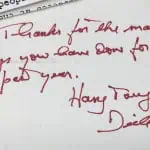 peop
Thanks for the ma
gs you have done for
past year.
Harry Tong
Dick